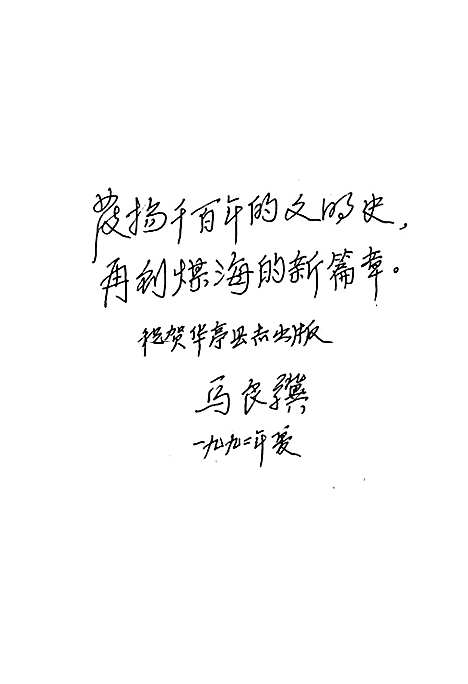 发扬千百年的文明史，
再创煤海的新篇章。
祝贺华亭县志出版
马良骥
一九九二年夏